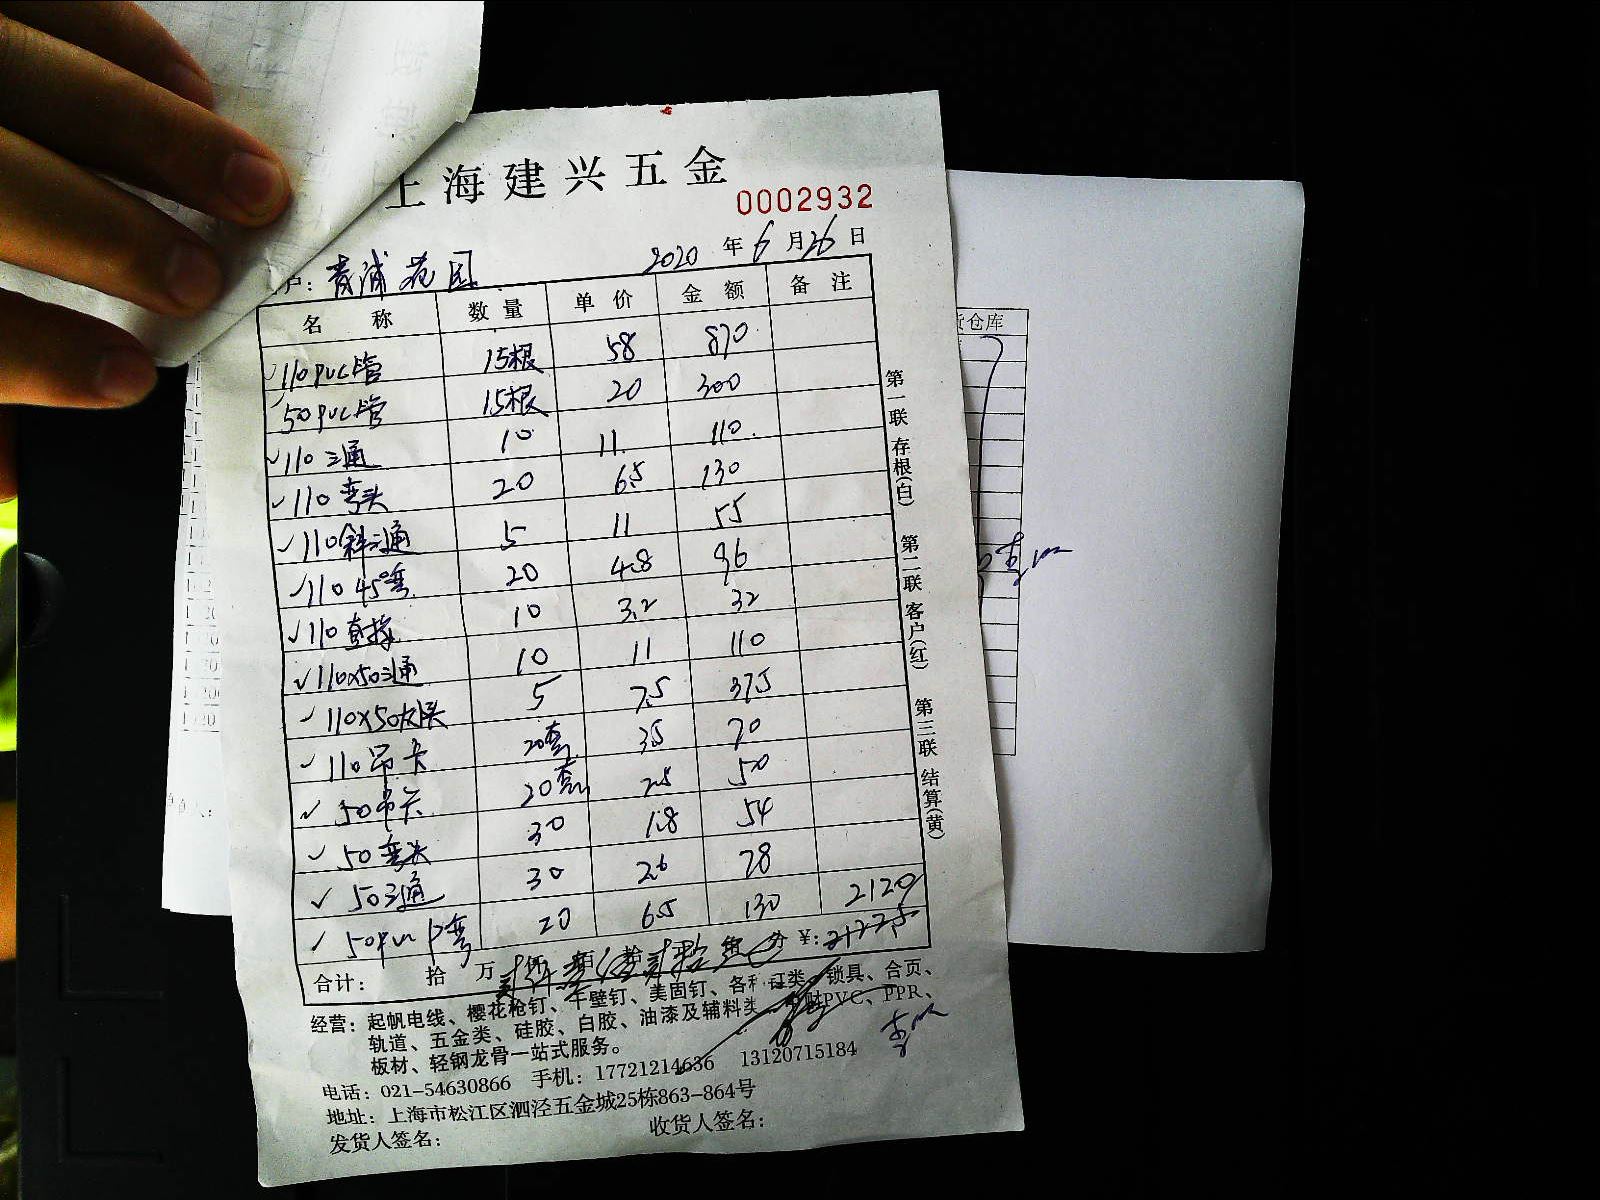 上海建兴五金
0002932
户：青浦花园 2020年6月26日
名称 数量 单价 金额 备注
110PVC管 15根 58 870
50PVC管 15根 20 300
✓110三通 10 11. 110.
✓110弯头 20 6.5 130
✓110斜三通 5 11 55
✓110 45°弯 20 4.8 96
✓110直接 10 3.2 32
✓110x50三通 10 11 110
✓110x50大小头 5 7.5 37.5
✓110吊卡 20套 3.5 70
✓50吊卡 20套 2.5 50
✓50弯头 30 1.8 54
✓50三通 30 2.6 78
✓50pvc P弯 20 6.5 130 2120
合计： 拾 万 仟 佰 拾 分 ¥: 2122.5
第一联 存根(白) 第二联 客户(红) 第三联 结算(黄)
经营：起帆电线、樱花枪钉、干壁钉、美固钉、各种钉类、锁具、合页、
轨道、五金类、硅胶、白胶、油漆及辅料类、PVC、PPR、
板材、轻钢龙骨一站式服务。
电话：021-54630866 手机：17721214636 13120715184
地址：上海市松江区泗泾五金城25栋863-864号
发货人签名： 收货人签名：
货仓库